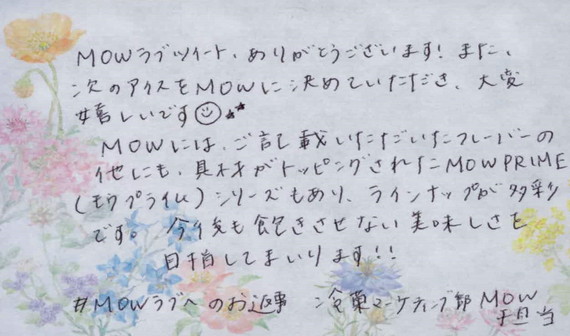 MOWラブツイート、ありがとうございます!また、
次のアイスをMOWに決めていただき、大変
嬉しいです
MOWには、ご記載いただいたフレーバーの
他にも、具材がトッピングされたMOW PRIME
(モウプライム)シリーズもあり、ラインナップが多彩
です。今後も飽きさせない美味しさを
目指してまいります!!
#MOWラブへのお返事 冷菓マーケティング部 MOW
担当